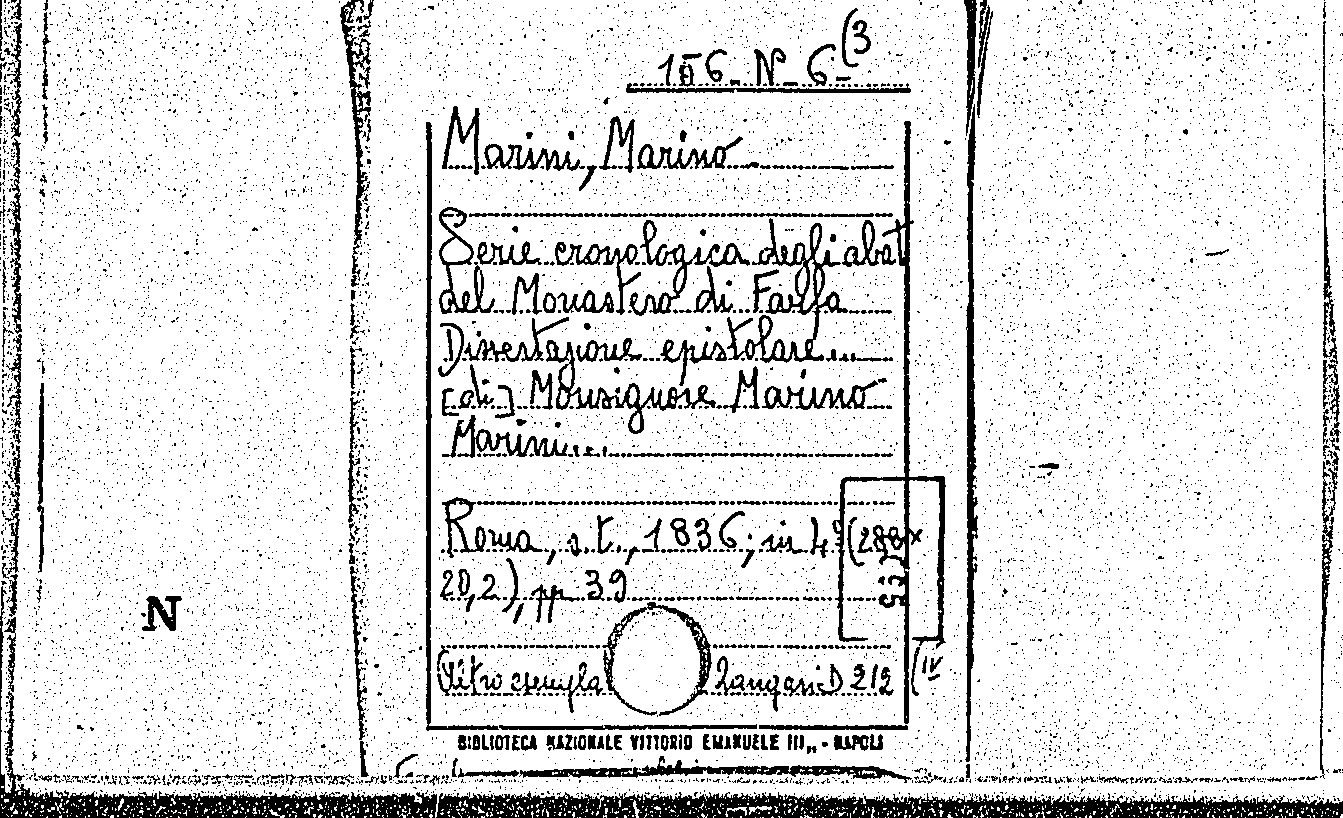 156-N-6-(3
Marini, Marino
Serie cronologica degli abat
del Monastero di Farfa
Dissertazione epistolare...
[di] Monsignore Marino
Marini...
Roma, s.t., 1836; in 4° (28,8 x
20,2), pp 39
Altro esempla D 212 (IV
BIBLIOTECA NAZIONALE VITTORIO EMANUELE III„ - NAPOLI
N